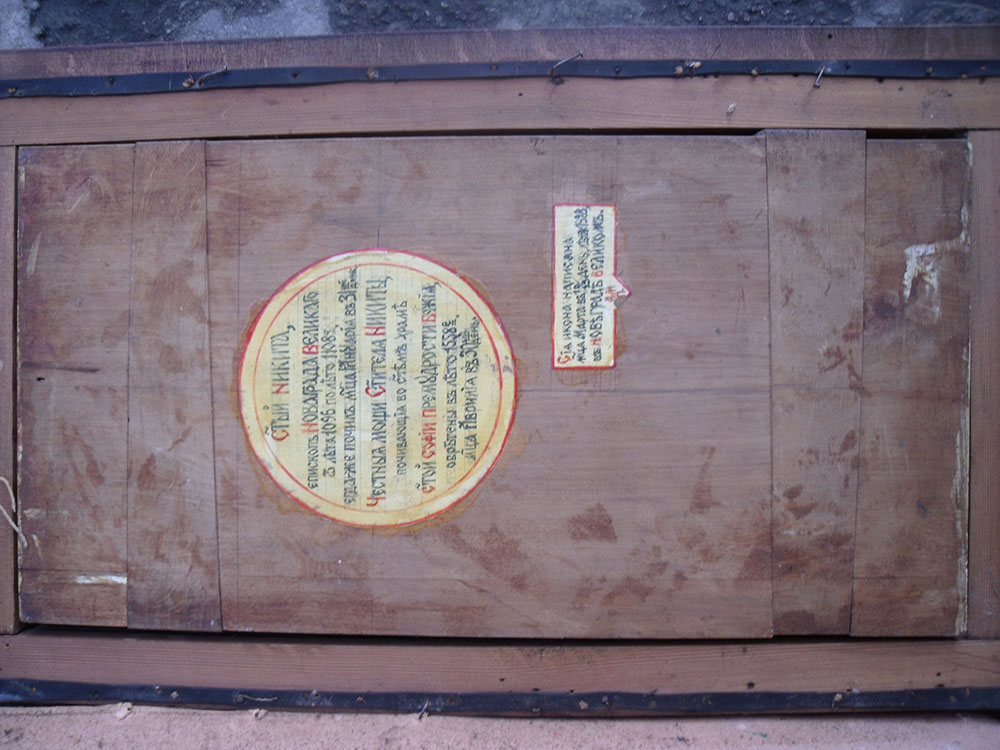 С҃тый Никита,
епископъ Новаграда Великагѡ
съ лѣта 1096 по лѣто 1108,
егда же почилъ м҃ца Іаннꙋарїа въ 31 день
Честныѧ мощи С҃тителѧ Никиты,
почивающїѧ во ст҃ѣмъ храмѣ
С҃той Софїи Премꙋдрости Бж҃їѧ,
ѡбрѣтены въ лѣто 1558е
м҃ца Апрїлїа въ 30 день.
Сїѧ икона написана
м҃ца Марта въ день, лѣта 1988,
въ Новѣградѣ Великомъ.